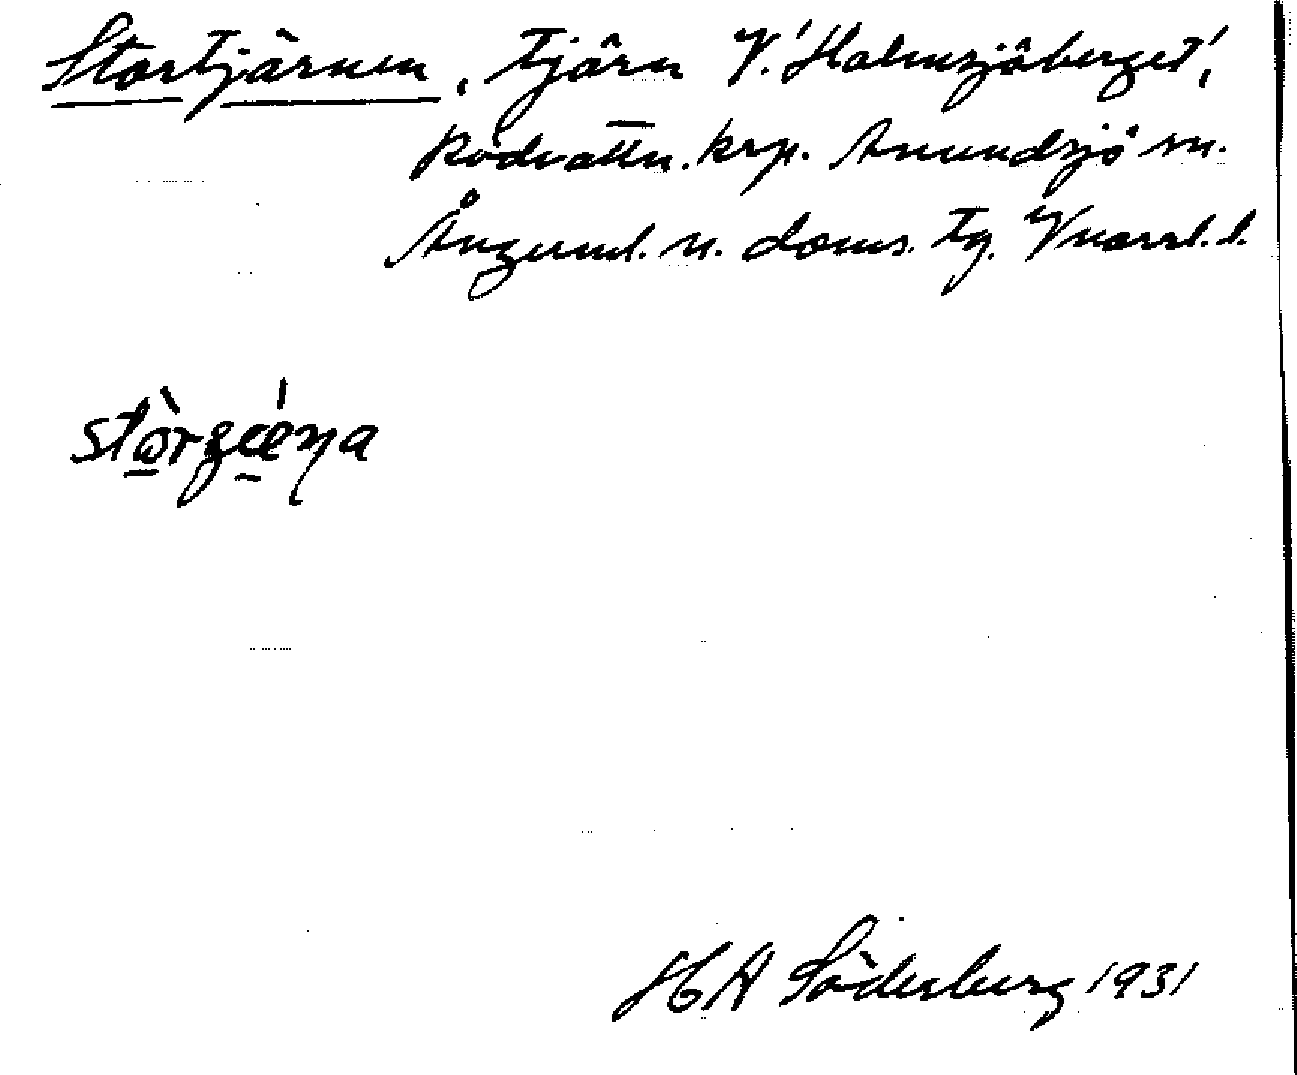 Stortjärnen, tjärn V. 'Holmsjöberget',
Rödvattn. krp. Anundsjö sn.
Ångerml. n. doms. tg. Vnorrl. l.
H A Söderberg 1931